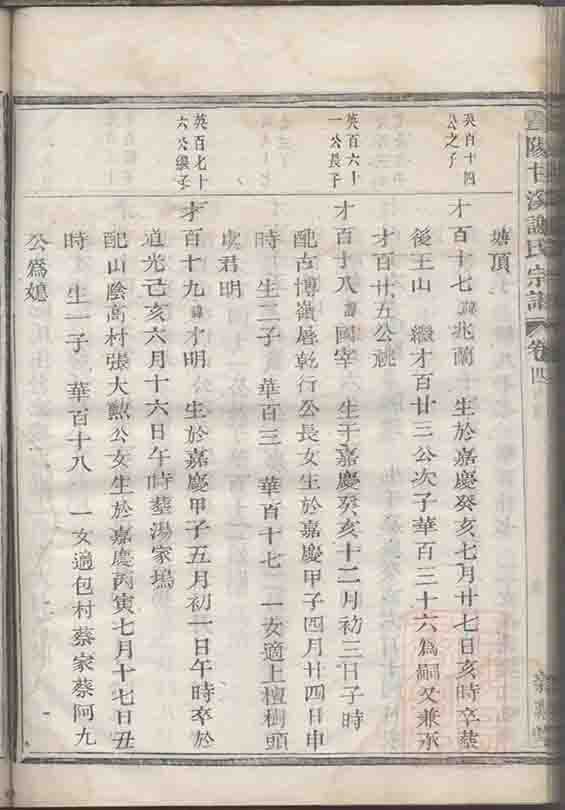 暨陽甘溪謝氏宗譜 卷四
塘頂
英百十四公之子
才百十七 諱兆蘭 生於嘉慶癸亥七月廿七日亥時卒葬
後王山 繼才百廿三公次子華百三十六為嗣又兼承
才百廿五公祧
英百六十一公長子
才百十八 諱國宰 生于嘉慶癸亥十二月初三日子時
配古博嶺厝乾行公長女生於嘉慶甲子四月廿四日申
時 生二子 華百三 華百十七 一女適上檀樹頭
虞君明
英百七十六公繼子
才百十九 諱才明 生於嘉慶甲子五月初一日午時卒於
道光己亥六月十六日午時葬湯家塢
配山陰高村張大勲公女生於嘉慶丙寅七月十七日丑
時 生一子 華百十八 一女適包村蔡家蔡阿九
公為媳